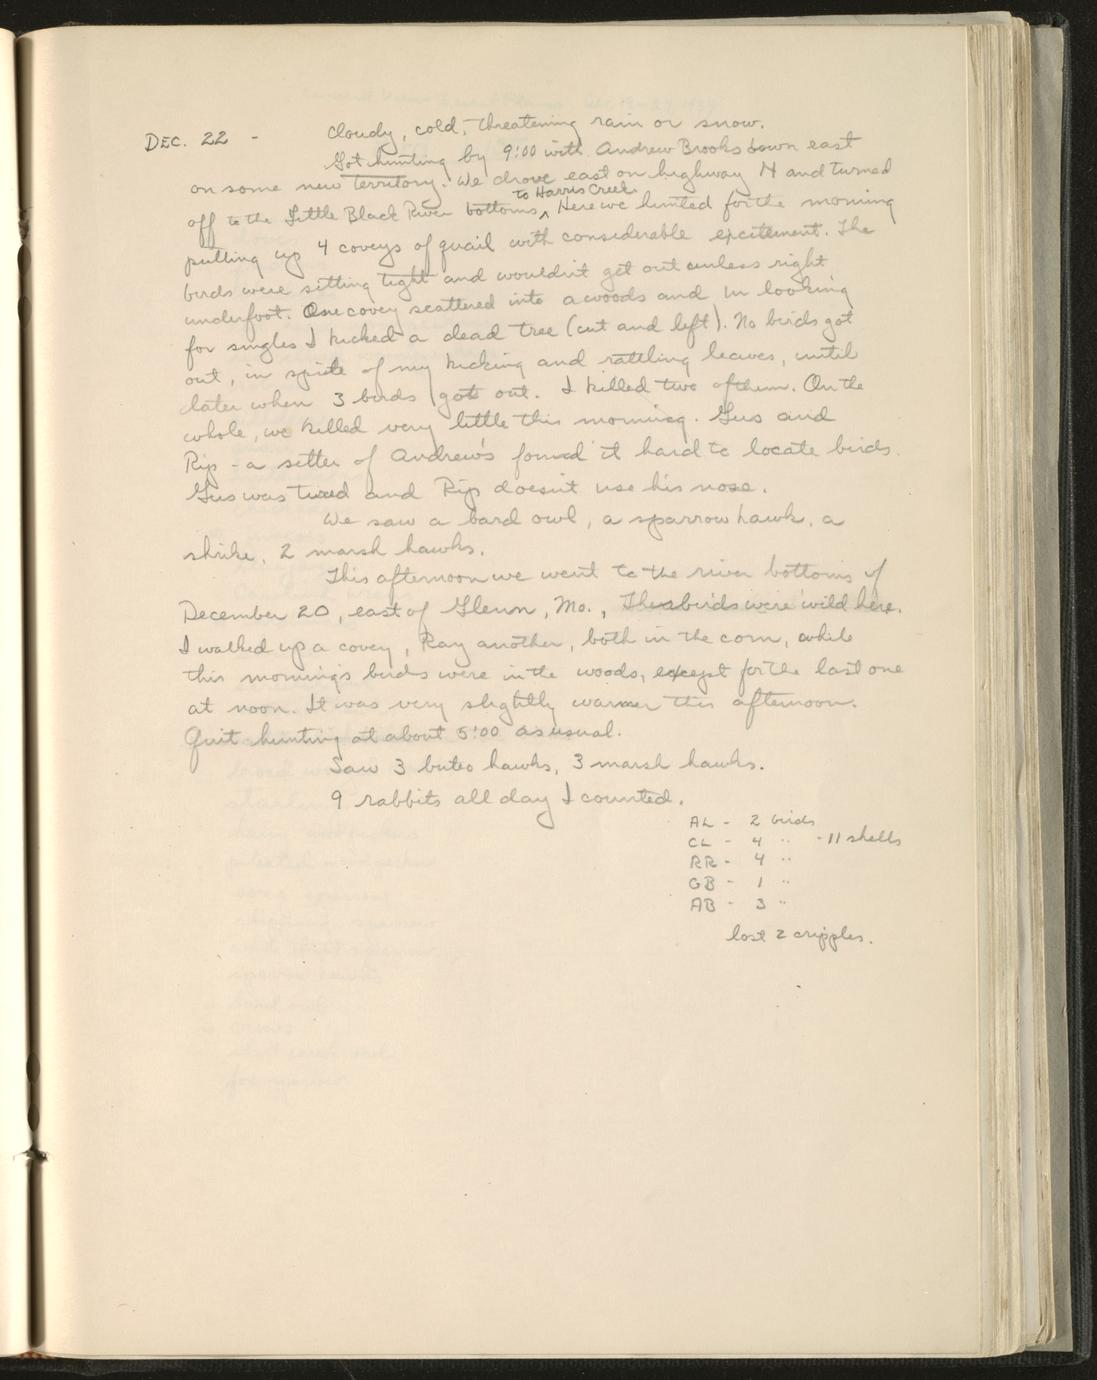 DEC. 22 - Cloudy, cold, threatening rain or snow.
Got hunting by 9:00 with Andrew Brooks down east
on some new territory. We drove east on highway N and turned
to Harris Creek.
off to the Little Black River bottoms ^ Here we hunted for the morning
putting up 4 coveys of quail with considerable excitement. The
birds were sitting tight and wouldn't get out unless right
underfoot. One covey scattered into a woods and in looking
for singles I kicked a dead tree (cut and left). No birds got
out, in spite of my kicking and rattling leaves, until
later when 3 birds got out. I killed two of them. On the
whole, we killed very little this morning. Gus and
Rip - a setter of Andrew's found it hard to locate birds.
Gus was tired and Rip doesn't use his nose.
We saw a bard owl, a sparrow hawk, a
shrike, 2 marsh hawks.
This afternoon we went to the river bottoms of
December 20, east of Glenn, Mo., The birds were wild here.
I walked up a covey, Ray another, both in the corn, while
this morning's birds were in the woods, except for the last one
at noon. It was very slightly warmer this afternoon.
Quit hunting at about 5:00 as usual.
Saw 3 buteo hawks, 3 marsh hawks.
9 rabbits all day I counted.
AL - 2 birds
CL - 4 " - 11 shells
RR - 4 "
GB - 1 "
AB - 3 "
lost 2 cripples.